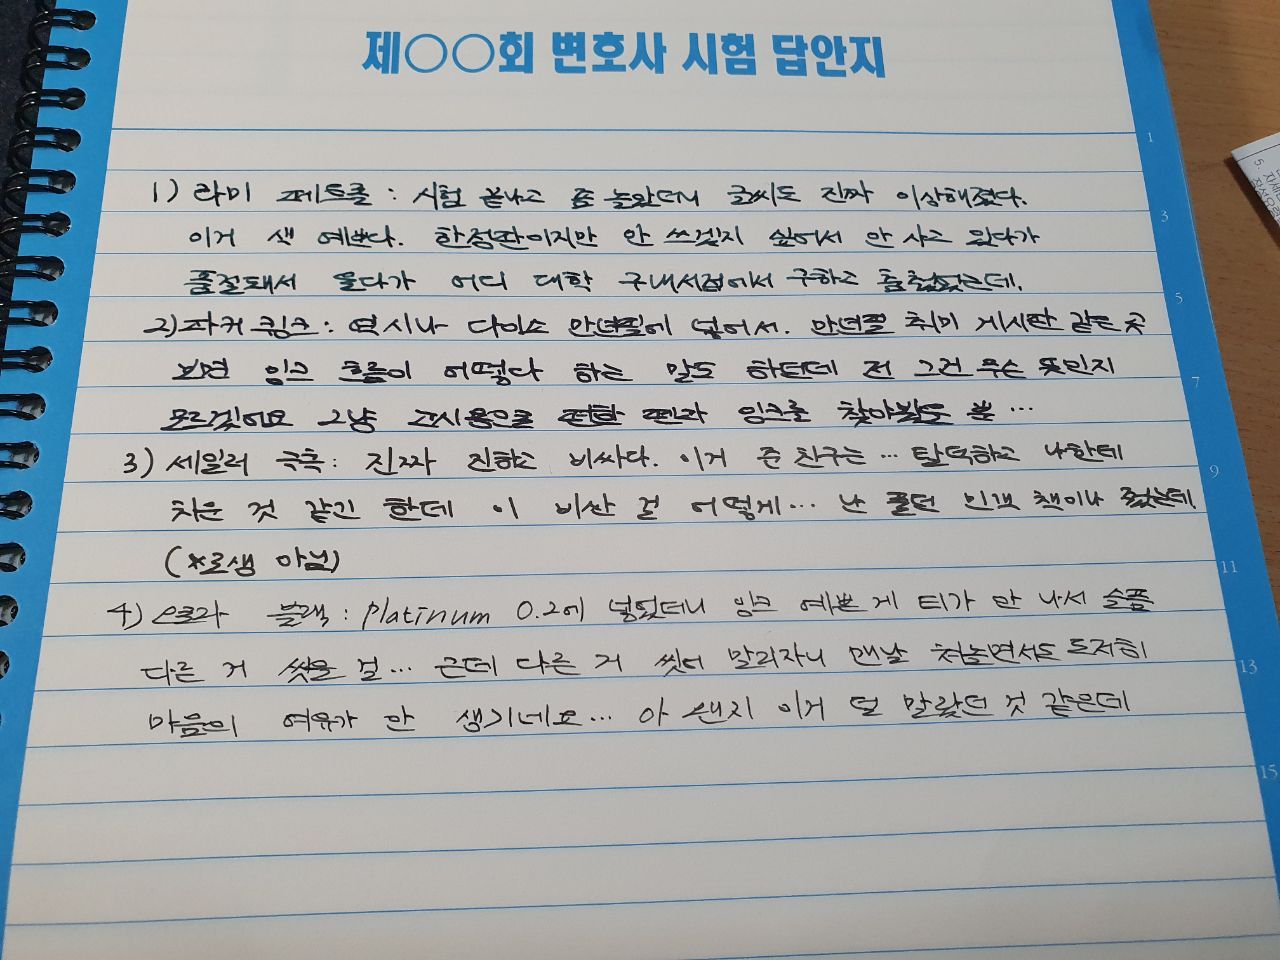 제○○회 변호사 시험 답안지
1) 라미 페트롤 : 시험 끝나고 좀 놀았더니 글씨도 진짜 이상해졌다.
이거 색 예쁘다. 한정판이지만 안 쓰겠지 싶어서 안 사고 있다가
품절돼서 울다가 어디 대학 구내서점에서 구하고 출첵했는데.
2) 파커 큉크 : 역시나 다이소 만년필에 넣어서. 만년필 취미 게시판 같은 곳
보면 잉크 흐름이 어떻다 하는 말도 하던데 전 그건 무슨 뜻인지
모르겠어요 그냥 고시용으로 편한 펜과 잉크를 찾아봤을 뿐...
3) 세일러 극흑 : 진짜 진하고 비싸다. 이거 준 친구는... 탈덕하고 나한테
치운 것 같긴 한데 이 비싼 걸 어떻게... 난 풀던 민갯 책이나 줬는데
(*로생 아님)
4) 오로라 블랙 : platinum 0.2에 넣었더니 잉크 예쁜 게 티가 안 나서 슬픔
다른 거 씻을 걸... 근데 다른 거 씻어 말리자니 맨날 쳐놀면서도 도저히
마음의 여유가 안 생기네요... 아 왠지 이거 덜 말랐던 것 같은데
1
3
5
7
9
11
13
15